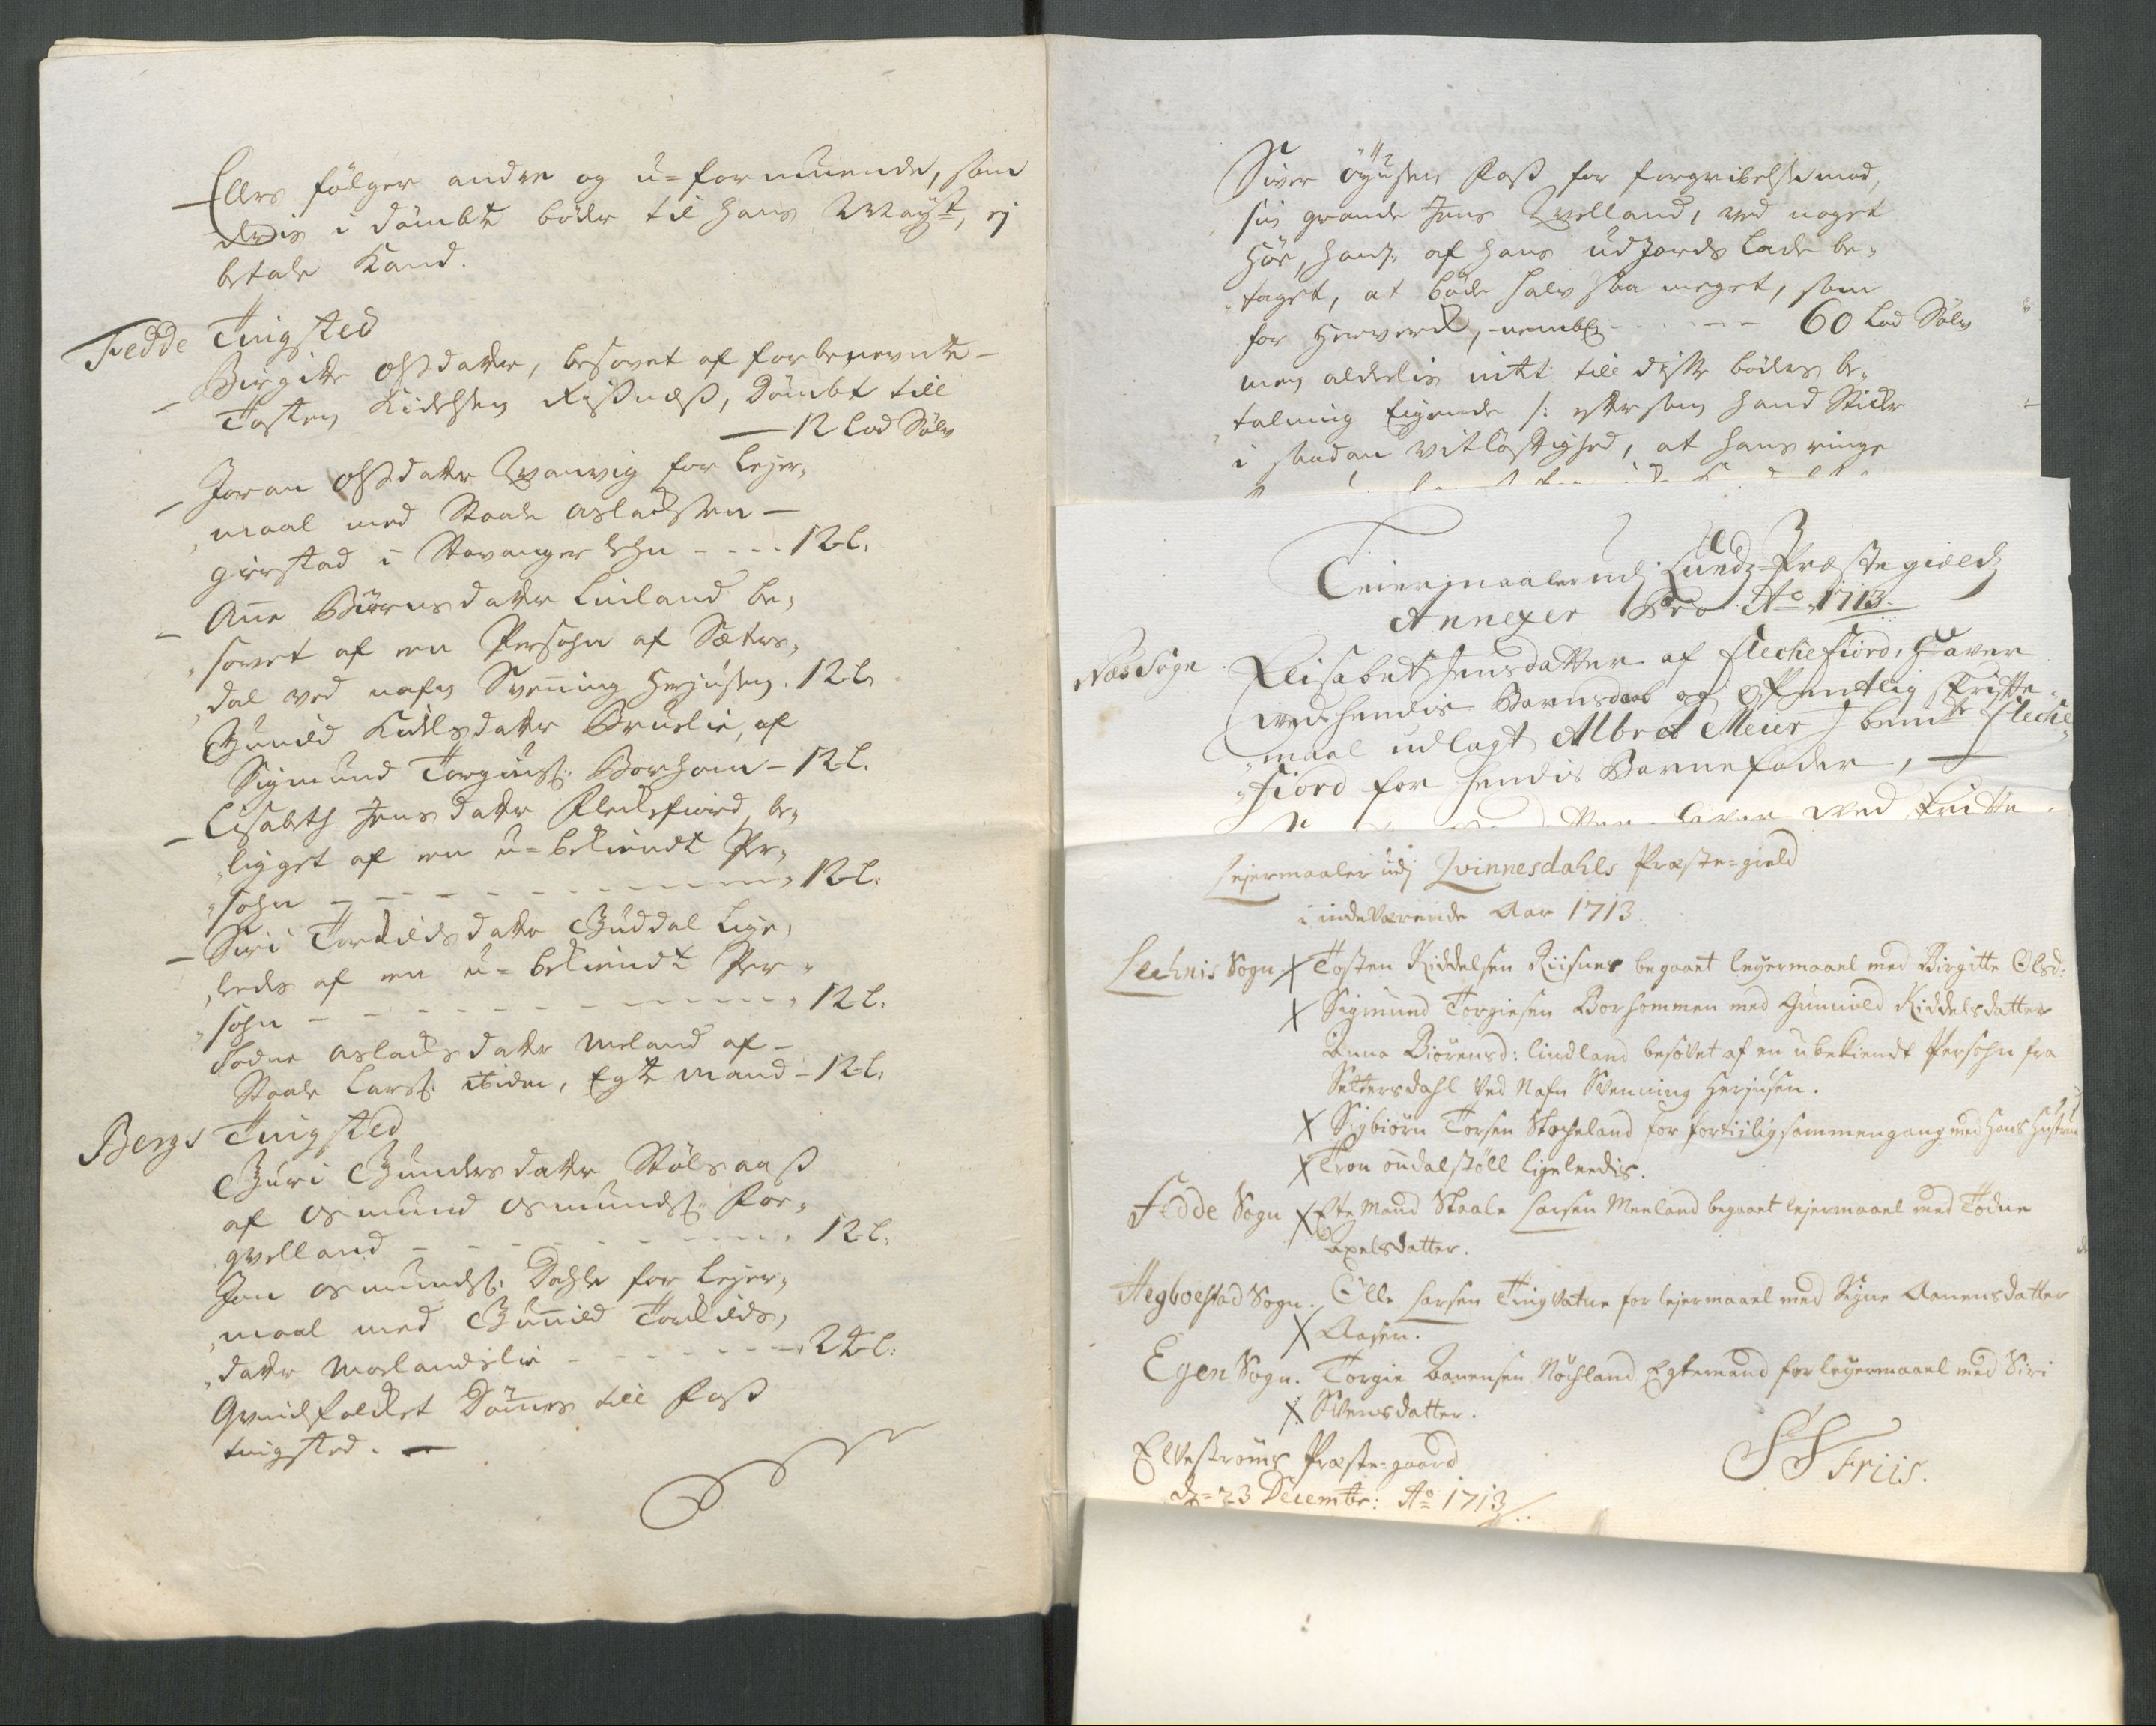 Ellers fölger andre og u=formuende, som
deris i dömbte böder til Hans Mayst, ej
betale Kand.
Fedde Tingsted
Birgitte Olsdatter, besovet af forbenevnte
Tosten Kidelsen Risnæs, Dömbt till
12 Lod Sölv
Joran Olsdatter Qvanvig for Lejer,
maal med Staale Aslachsen
girstad i Stavanger lehn - - - - 12 l.
Ane Biörnsdatter Linland be,
sovet af een Persohn af Sæters,
dal ved nafn Svening Herjusen. 12 l.
Gunild Kidelsdatter Bruslie, af
Sigmund Torgius: Borhom - 12 l.
Lisabeth Jensdatter Flechefiord be,
ligget af een u=bekiendt Per,
sohn - - - - - - 12 l:
Siri Torkildsdatter Guddal Lige,
leeds af een u=bekiendt Per,
sohn - - - - - - 12 l:
Todne Aslachsdatter Meland af
Staale Lars: ibidem, Egte Mand - 12 l:
Bergs Tingsted
Guri Gundersdatter Stölsaas
af Osmund Osmunds: For,
qvelland - - - - - - 12 l:
Jon Osmunds: Dahle for Lejer,
maal med Gunild Torkilds,
datter Morlandslie - - - - - 24 l:
Qvindfolcket Dömes till Fos
tingsted.
Siver Öyusen Foss for forgribelse mod,
sin grande Jens Qvelland, ved noget
Höe, hand af hans udJords Lade be,
taget, at böde halv saa meget, som
for Herverck, nembl: - - - 60 Lod Sölv
men alderlis intet till disse böders be,
talning Eigende /: eftersom hand Sticker
i saadan vitlöftighed, at hans ringe
Leiermaaler udj Lundz Præstegields
Annexer Pro Ao 1713.
Næs Sogn. Elisabet Jensdatter af Flechefiord, Haver
ved hendis Barnsdaab og offentlig skrifte
maal udlagt Albret Meier i bemte Fleche
fiord for hendis Barnefader,
Lejermaaler udj Qvinnesdahls Præste=gield
i indeværende Aar 1713
Lechnis Sogn. X Tosten Kiddelsen Riisnes begaaet lejermaael med Birgitte Olsd:
X Sigmund Torgiesen Borhommen med Gunnild Kiddelsdatter
Anna Biörensd: lindland besövet af en ubekiendt Persohn fra
Settersdahl ved Nafn Svenning Herjusen.
X Sigbiörn Torsen Stocheland for fortiilig sammengang med hans Hustrue
X Tron oudalstöll ligeleedis.
Fedde Sogn X Ecte Mand Staale Larsen Meeland begaaet lejermaael med Todne
Axelsdatter.
Hegboestad Sogn. Olle Larsen Tingvatne for lejermaael med Signe Aanensdatter
X Aasen.
Egen Sogn. Torgie Aanensen Nöchland Egtemand for lejermaael med Siri
X Svensdatter.
Elvestrøms Præste=gaard
dz=23 Decembr: Ao 1713
Friis.